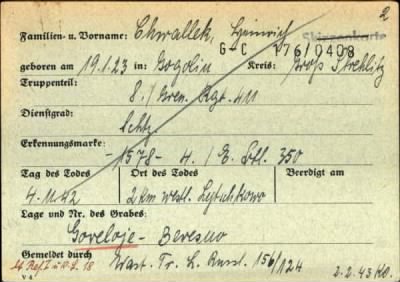 2
Familien- u. Vorname: Chwallek, Heinrich
G-C 176/0408
geboren am 19.1.23 in: Gogolin Kreis: Groß Strehlitz
Truppenteil:
8./Gren. Rgt. 411
Dienstgrad:
Schtz.
Erkennungsmarke:
-1578- 4./E. Btl. 350
Tag des Todes Ort des Todes Beerdigt am
4.11.42 2 km westl. Lytschkowo
Lage und Nr. des Grabes:
Goreloje-Beresno
Gemeldet durch
Wast. Tr. L. Russl. 156/124
2.2.43
V 4